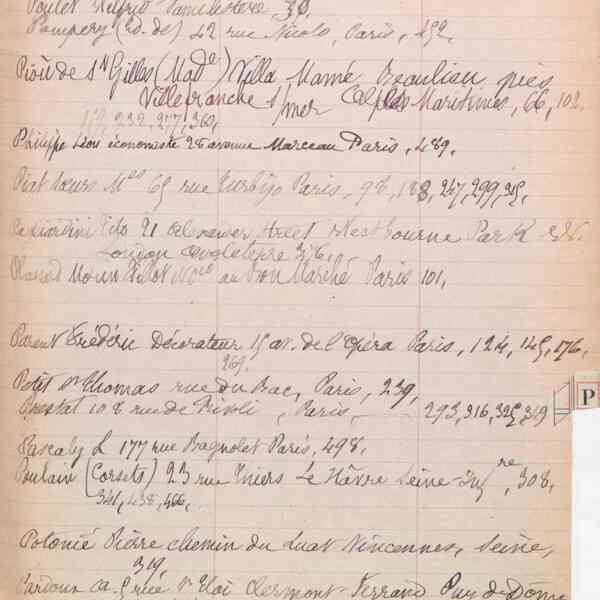 Poulet Wilfrid Familistère 30,
Pompery (Ed. de) 42 rue Nicolo, Paris, 452.
Piou de St Gilles (Made) Villa Mamé Beaulieu près
Villefranche s/mer Alpes Maritimes, 66, 102.
179, 232, 277, 360,
Philippe Léon économiste 28 avenue Marceau Paris, 489.
Piat soeurs Mes 65 rue Turbigo Paris, 98, 183, 247, 299, 315,
Pagliardini Tito 21 Alexander Street Westbourne Park
London Angleterre 376.
Plassard Morin Fillot au Bon Marché Paris 101.
Parent Frédéric Décorateur 15 av. de l'opéra Paris, 124, 145, 176,
269.
Petit St Thomas rue du Bac, Paris, 239,
108 rue de Rivoli, Paris, 293, 316, 325, 319
P
Pascaly L 177 rue Bagnolet Paris, 498,
Poulain (Corsets) 23 rue Thiers Le Hâvre Seine Infre, 308,
341, 438, 466,
Polonié Pierre chemin du Luat Vincennes, Seine,
319,
Pardoux St Eloi Clermont-Ferrand Puy de Dôme